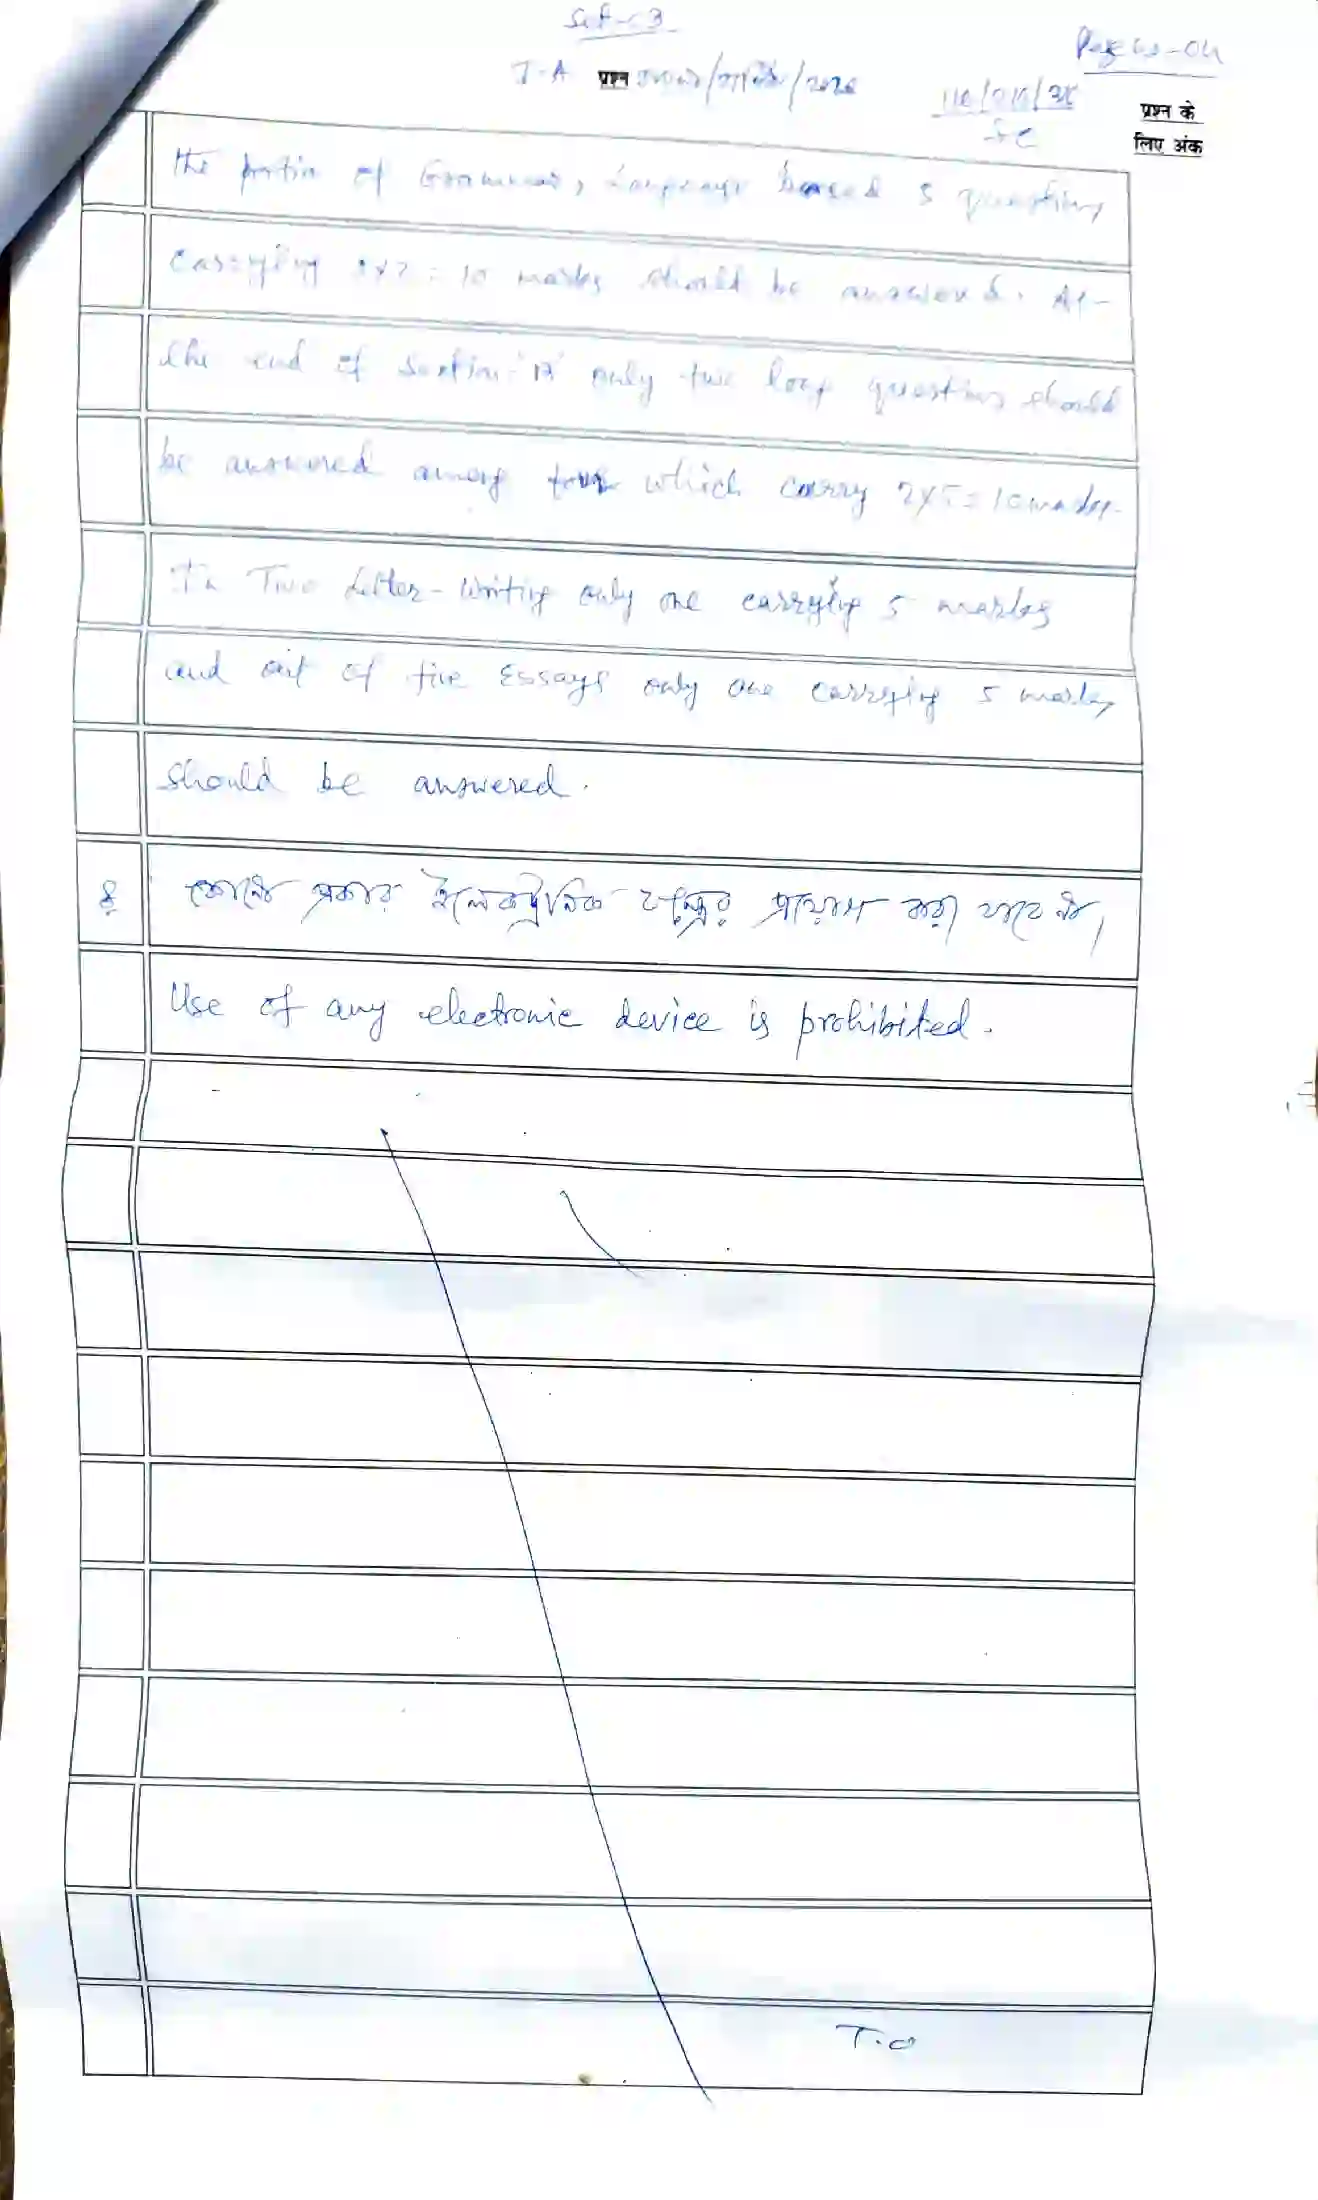 Set-C3
Page no-04
T-A प्रश्न
प्रश्न के
लिए अंक
the portion of Grammar, Language based 5 questions
carrying 5x2=10 marks should be answered. At-
the end of Section-'B' only two long questions should
be answered among four which carry 2x5=10 marks.
In Two Letter-writing only one carrying 5 marks
and out of five Essays only one carrying 5 marks
should be answered.
কোনো প্রকার ইলেকট্রনিক যন্ত্রের প্রয়োগ করা যাবে না।
Use of any electronic device is prohibited.
T.O